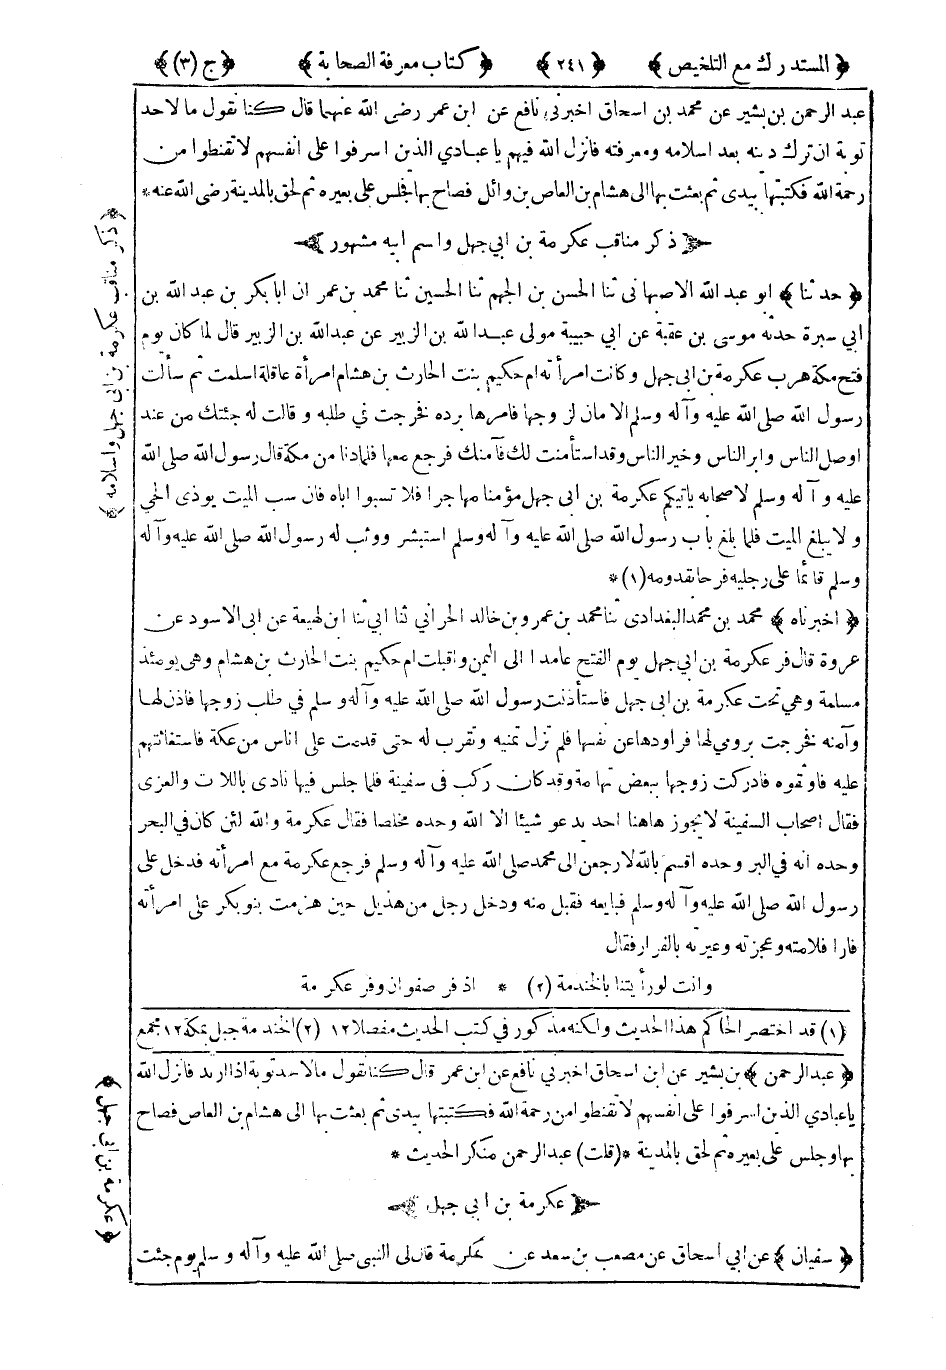 ﴿ المستدرك مع التلخيص ﴾ ﴿ ٢٤١ ﴾ ﴿ كتاب معرفة الصحابة ﴾ ﴿ ج (٣) ﴾
عبد الرحمن بن بشير عن محمد بن اسحاق اخبرني نافع عن ابن عمر رضى الله عنهما قال كنا نقول ما لاحد
توبة ان ترك دينه بعد اسلامه ومعرفته فانزل الله فيهم يا عبادي الذين اسرفوا على انفسهم لا تقنطوا من
رحمة الله فكتبتها بيدى ثم بعثت بها الى هشام بن العاص بن وائل فصاح بها فجلس على بعيره ثم لحق بالمدينة رضى الله عنه *
﴿ ذكر مناقب عكرمة بن ابي جهل واسم ابيه مشهور ﴾
﴿ حدثنا ﴾ ابو عبد الله الاصبهانى ثنا الحسن بن الجهم ثنا الحسين ثنا محمد بن عمر ان ابا بكر بن عبد الله بن
ابي سبرة حدثه موسى بن عقبة عن ابي حبيبة مولى عبد الله بن الزبير عن عبدالله بن الزبير قال لما كان يوم
فتح مكة هرب عكرمة بن ابى جهل وكانت امرأته ام حكيم بنت الحارث بن هشام امرأة عاقلة اسلمت ثم سألت
رسول الله صلى الله عليه وآله وسلم الامان لزوجها فامرها برده فخرجت في طلبه و قالت له جئتك من عند
اوصل الناس وابر الناس وخير الناس وقد استأمنت لك فآمنك فرجع معها فلما دنا من مكة قال رسول الله صلى الله
عليه وآله وسلم لاصحابه يأتيكم عكرمة بن ابى جهل مؤمنا مهاجرا فلا تسبوا اباه فان سب الميت يوذى الحي
ولا يبلغ الميت فلما بلغ باب رسول الله صلى الله عليه وآله وسلم استبشر ووثب له رسول الله صلى الله عليه وآله
وسلم قائما على رجليه فرحا بقدومه (١) *
﴿ اخبرناه ﴾ محمد بن محمد البغدادى ثنا محمد بن عمرو بن خالد الحراني ثنا ابي ثنا ابن لهيعة عن ابى الاسود عن
عروة قال فر عكرمة بن ابي جهل يوم الفتح عامدا الى اليمن واقبلت ام حكيم بنت الحارث بن هشام وهى يومئذ
مسلمة وهي تحت عكرمة بن ابى جهل فاستأذنت رسول الله صلى الله عليه وآله وسلم في طلب زوجها فاذن لها
وآمنه فخرجت برومي لها فراودها عن نفسها فلم تزل تمنيه وتقرب له حتى قدمت على اناس من عكة فاستغاثتهم
عليه فاوثقوه فادركت زوجها ببعض تهامة وقد كان ركب فى سفينة فلما جلس فيها نادى باللات والعزى
فقال اصحاب السفينة لا يجوز هاهنا احد يدعو شيئا الا الله وحده مخلصا فقال عكرمة والله لئن كان في البحر
وحده انه في البر وحده اقسم بالله لارجعن الى محمد صلى الله عليه وآله وسلم فرجع عكرمة مع امرأته فدخل على
رسول الله صلى الله عليه وآله وسلم فبايعه فقبل منه ودخل رجل من هذيل حين هزمت بنو بكر على امرأته
فارا فلامته وعجزته وعيرته بالفرار فقال
وانت لو رأيتنا بالخندمة (٢) * اذ فر صفوان وفر عكرمة
(١) قد اختصر الحاكم هذا الحديث ولكنه مذكور في كتب الحديث مفصلا ١٢ (٢) الخندمة جبل بمكة ١٢ مجمع
﴿ عبد الرحمن ﴾ بن بشير عن ابن اسحاق اخبرني نافع عن ابن عمر قال كنا نقول ما لاحد توبة اذا ارتد فانزل الله
يا عبادي الذين اسرفوا على انفسهم لا تقنطوا من رحمة الله فكتبتها بيدى ثم بعثت بها الى هشام بن العاص فصاح
بها وجلس على بعيره ثم لحق بالمدينة * (قلت) عبد الرحمن منكر الحديث *
﴿ عكرمة بن ابي جهل ﴾
﴿ سفيان ﴾ عن ابي اسحاق عن مصعب بن سعد عن عكرمة قال لى النبى صلى الله عليه وآله وسلم يوم جئت
﴿ ذكر مناقب عكرمة بن ابى جهل واسلامه ﴾
﴿ عكرمة بن ابى جهل ﴾